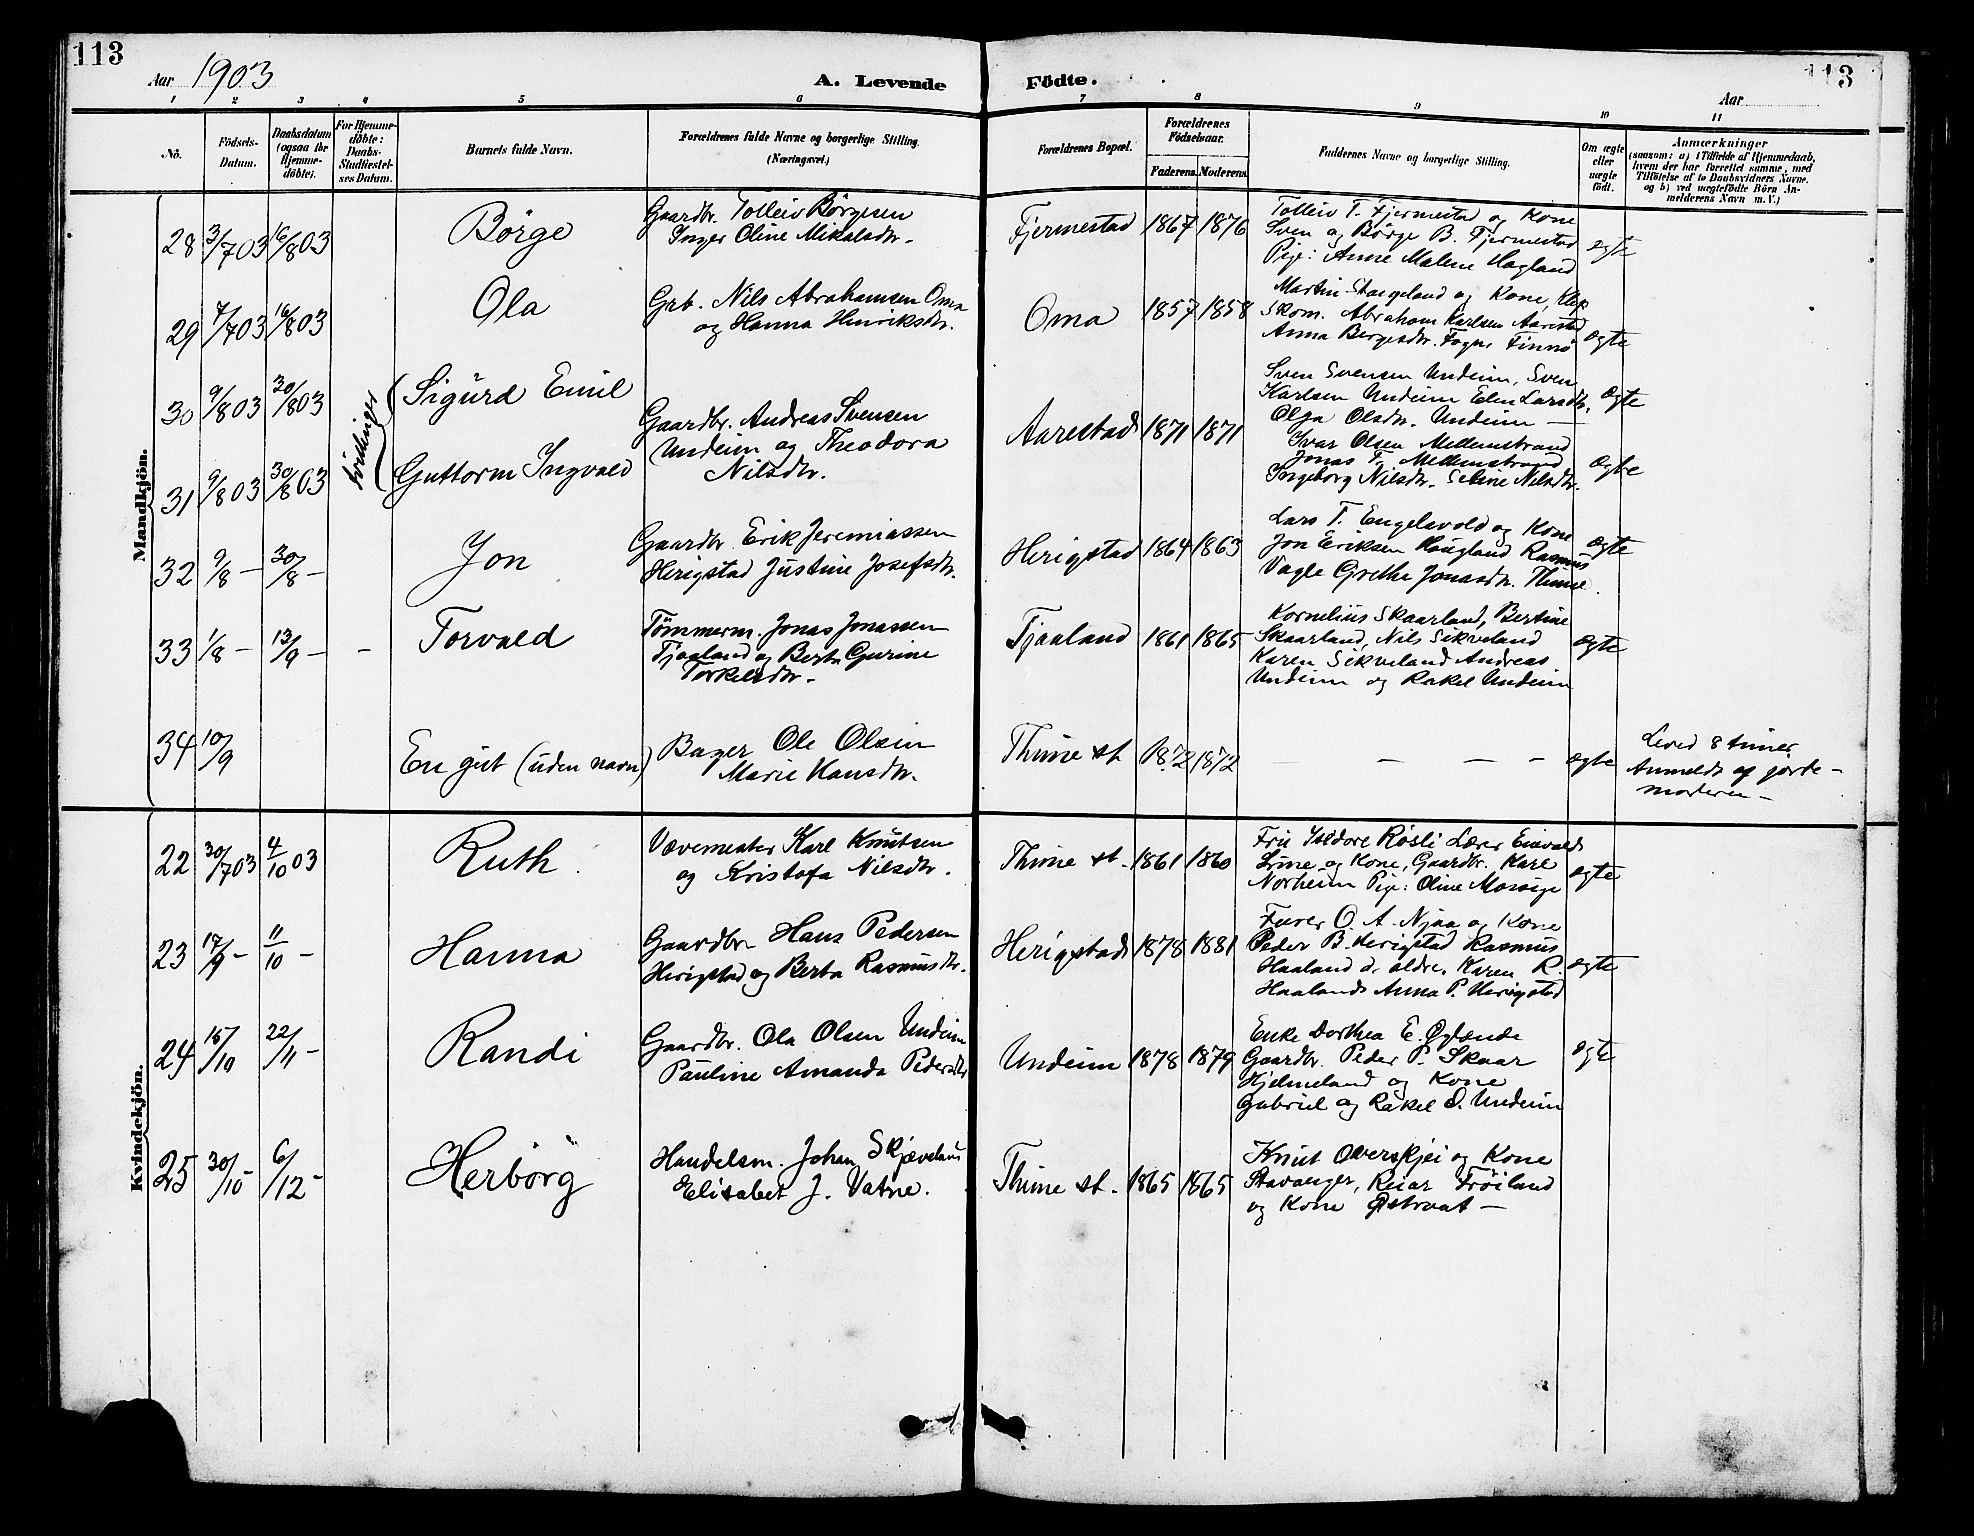 113
Aar 1903
A. Levende Födte.
113
Aar
1 2 3 4 5 6 7 8 9 10 11
No.
Födsels-Datum.
Daabsdatum (ogsaa for Hjemme-döbte).
For Hjemme-döbte: Daabs-Stadfæstel-ses Datum.
Barnets fulde Navn.
Forældrenes fulde Navne og borgerlige Stilling. (Næringsvei.)
Forældrenes Bopæl.
Forældrenes Födselsaar.
Faderens. Moderens.
Faddernes Navne og borgerlige Stilling.
Om ægte eller uægte födt.
Anmærkninger
(saasom: a) i Tilfælde af Hjemmedaab, hvem der har forrettet samme, med Tilföielse af to Daabsvidners Navne. og b) ved uægtefödte Börn An-melderens Navn m. V.)
Mandkjön.
28 3/7 03 16/8 03 Börge
Gaardbr. Tolleiv Börgesen
Inger Oline Mikalsdtr.
Fjermestad 1867 1876
Tolleiv T. Fjermestad og Kone
Sven og Börge B. Fjermestad
Pige: Anne Malene Hagland
ægte
29 7/7 03 16/8 03 Ola
Grb. Nils Abrahamsen Oma
og Hanna Henriksdtr.
Oma 1857 1858
Martin Stangeland og Kone, Klep
Skom. Abraham Karlsen Aarestad
Anna Bergesdtr. Fogn, Finnö
ægte
tvillinger
30 9/8 03 30/8 03 Sigurd Emil
31 9/8 03 30/8 03 Guttorm Ingvald
Gaardbr. Andreas Svensen
Undeim og Theodora
Nilsdtr.
Aarestad 1871 1871
Sven Svensen Undeim, Sven
Karlsen Undeim Elen Larsdtr.
Olga Olsdtr. Undeim —
ægte
Ivar Olsen Mellemstrand
Jonas T. Mellemstrand
Ingeborg Nilsdtr. Seline Nilsdtr.
ægte
32 9/8 — 30/8 — Jon
Gaardbr. Erik Jeremiassen
Herigstad Justine Josefsdtr.
Herigstad 1864 1863
Lars T. Engelsvold og Kone
Jon Eriksen Haugland Rasmus
Vagle Grethe Jonasdtr. Thime.
ægte
33 1/8 — 13/9 — — Torvald
Tömmerm. Jonas Jonassen
Tjaaland og Berta Gurine
Torkelsdtr.
Tjaaland 1861 1865
Kornelius Skaarland, Bertine
Skaarland, Nils Sikveland
Karen Sikveland Andreas
Undeim og Rakel Undeim
ægte
34 10/9 En gut (uden navn)
Bager Ole Olsen
Marie Hansdtr.
Thime st 1872 1872 — — — — ægte
Leved 8 timer
Anmeldt af jorde-
moderen —
Kvindekjön.
22 30/7 03 4/10 03 Ruth
Vævemester Karl Knutsen
og Kristofa Nilsdtr.
Thime st. 1861 1860
Fru Isidore Røsli Lærer Einvald
Lime og Kone, Gaardbr. Karl
Norheim Pige: Oline Mossige
ægte
23 17/9 — 11/10 — Hanna
Gaardbr. Hans Pedersen
Herigstad og Berta Rasmusdtr.
Herigstad 1878 1881
Furer O. A. Njaa og Kone
Peder B. Herigstad Rasmus
Haaland d. ældre, Karen R.
Haaland Anna P. Herigstad
ægte
24 15/10 22/11 — Randi
Gaardbr. Ola Olsen Undeim
Pauline Amanda Pedersdtr
Undeim 1878 1879
Enke Dorthea E.
Gaardbr. Peder P. Skaar
Hjelmeland og Kone
Gabriel og Rakel O. Undeim
ægte
25 30/10 — 6/12 — Herbörg
Handelsm. Johan Skjæveland
Elisabet J. Vatne.
Thime st. 1865 1865
Knut Overskjei og Kone
Stavanger, Reiar Fröiland
og Kone Østraat —